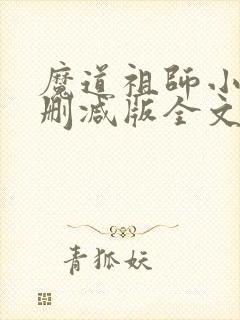 魔道祖師小
刪减版全文
青狐妖